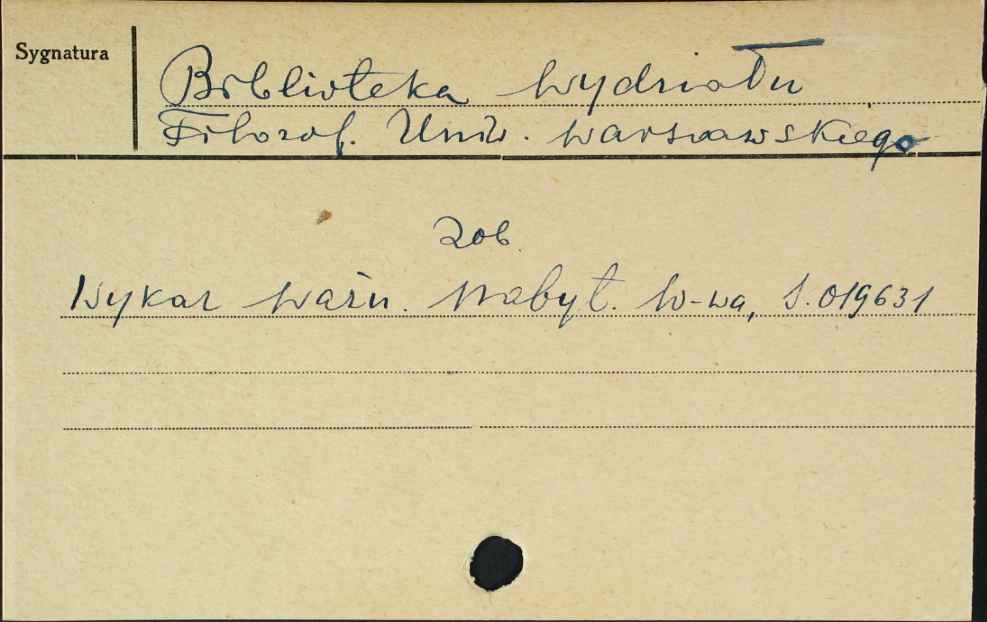 Sygnatura
Biblioteka Wydziału
Filozof. Uniw. Warszawskiego
Zob.
Wykaz ważn. Nabyt. W-wa, S. 019631